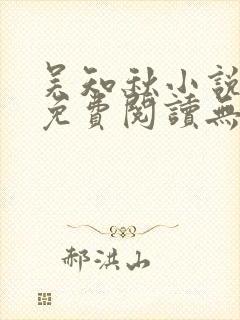 吴知秋小說
免費閱讀無
郝洪山